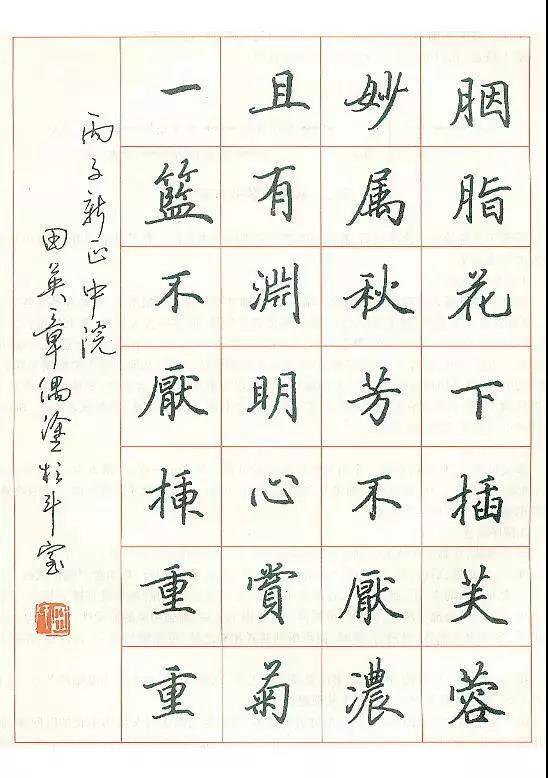 胭脂花下插芙蓉
妙属秋芳不厭濃
且有淵明心賞菊
一籃不厭插重重
丙子新正中浣
田英章偶塗於斗室